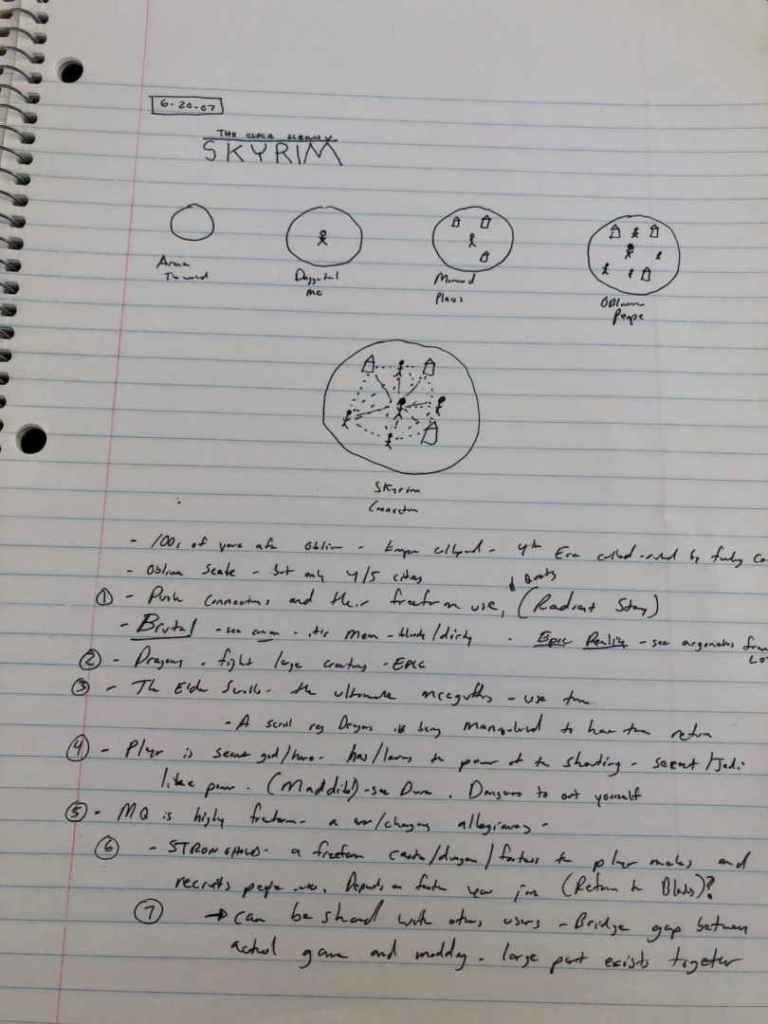 6-20-07
THE ELDER SCROLLS V
SKYRIM
Arena
Daggerfall
Me
Morrowind
Places
Oblivion
People
Skyrim
Connection
- 100s of years after Oblivion - Empire collapsed - 4th Era - ruled by
- Oblivion Scale - but only 4/5 cities
① - Push connections and their freeform use, (Radiant Story)
- Brutal - see - dirty - Epic Reality - see from
② - Dragons - fight large creatures - EPIC
③ - The Elder Scrolls - the ultimate - use
- A scroll Dragons is being manipulated to have them return
④ - Player is secret god/hero - has/learns the power of the shouting - secret/Jedi
like power. (Maddib) - see Dune. Dangerous to out yourself
⑤ - MQ is highly freeform - a war/changing allegiances -
⑥ - STRONGHOLD - a freeform castle/dungeon/fortress the player makes and
recruits people into. Depends on faction you join (Return to Blades)?
⑦ → can be shared with other users - Bridge gap between
actual game and modding - large part exists together